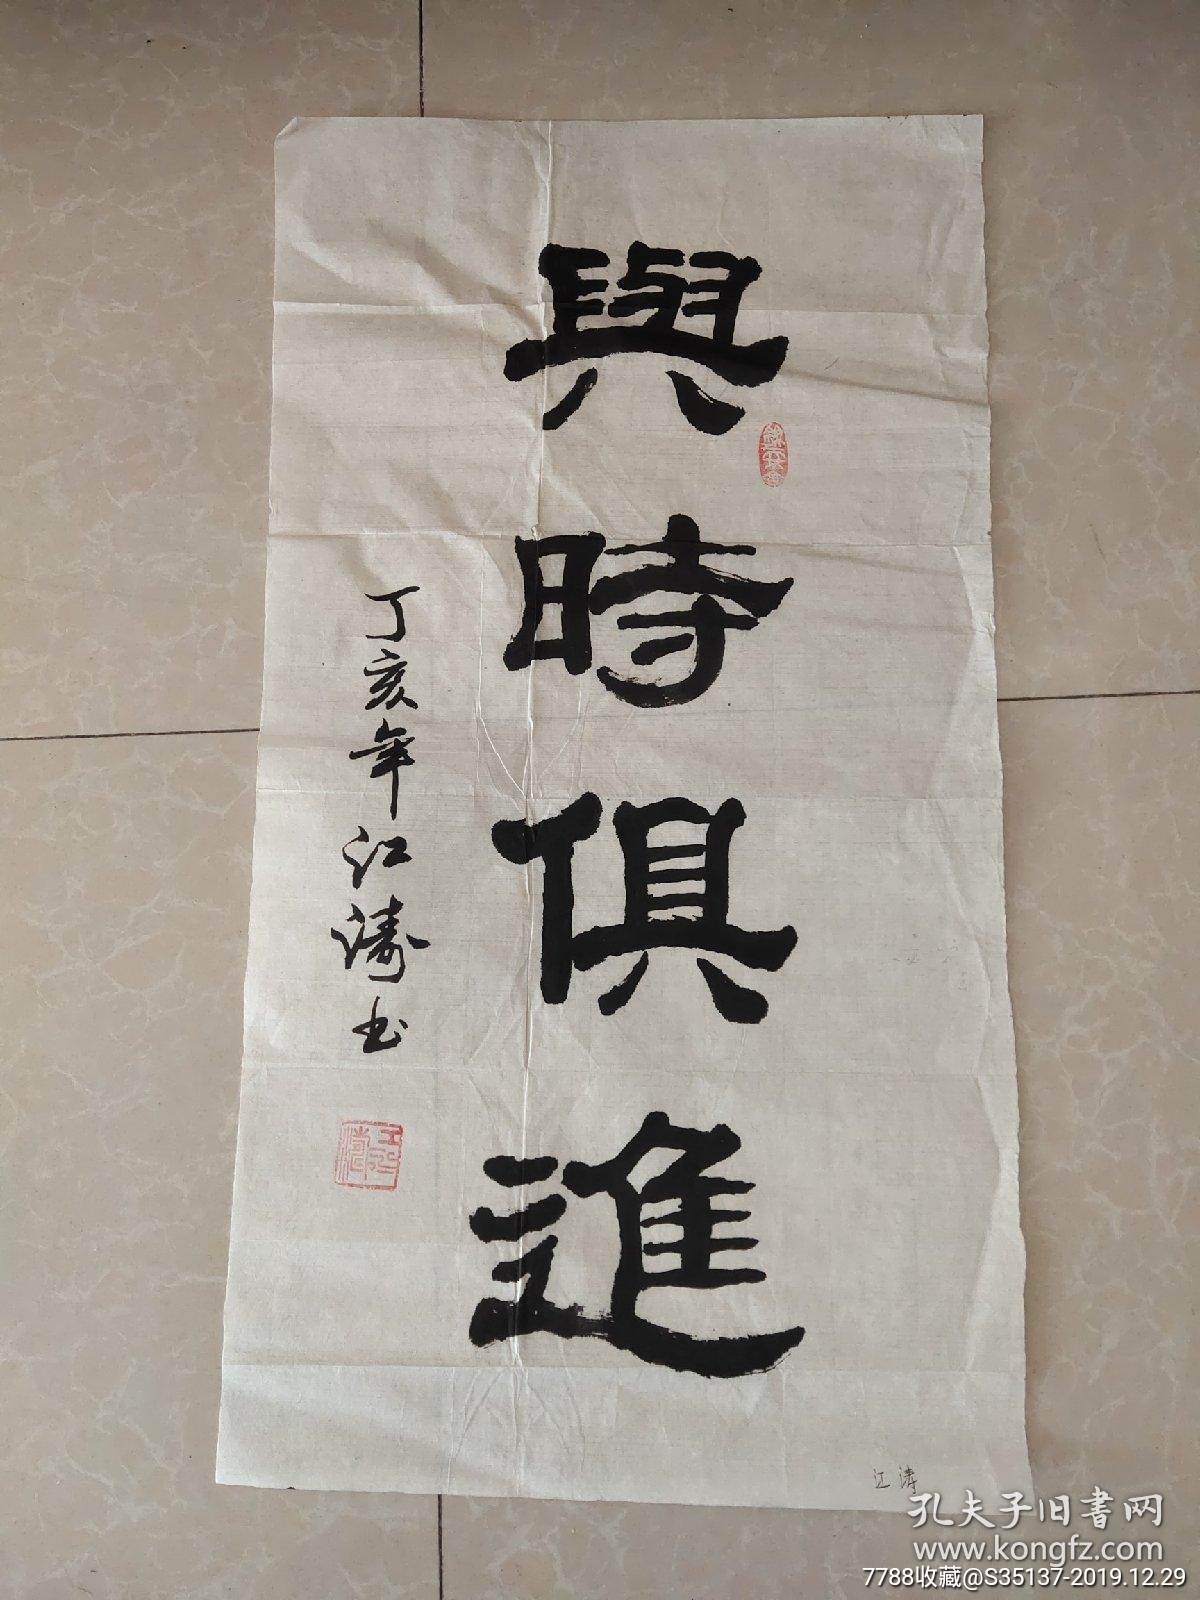 與時俱進
丁亥年江濤书
江涛
孔夫子旧书网
www.kongfz.com
7788收藏@S35137-2019.12.29